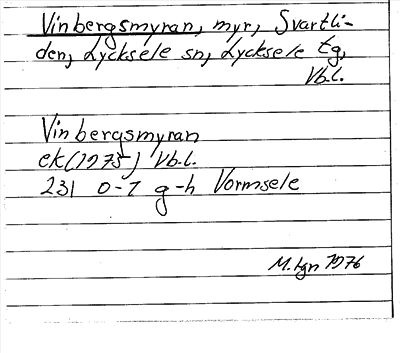 Vinbergsmyran, myr, Svartli-
den, Lycksele sn, Lycksele tg,
Vb.l.
Vinbergsmyran
ek (1975) Vb.l.
231 0-1 g-h Vormsele
M. Lgn 1976